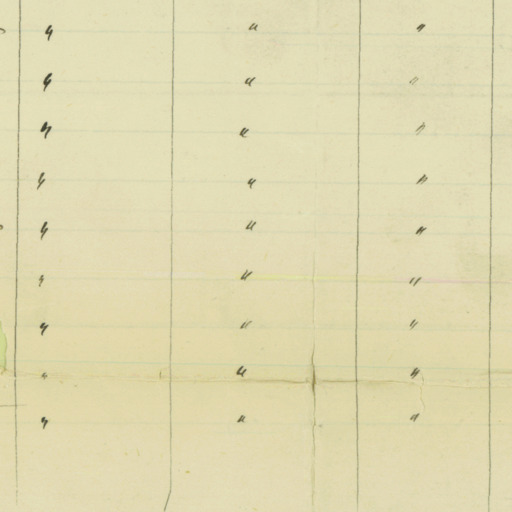 " " "
" " "
" " "
" " "
" " "
" " "
" " "
" " "
" " "